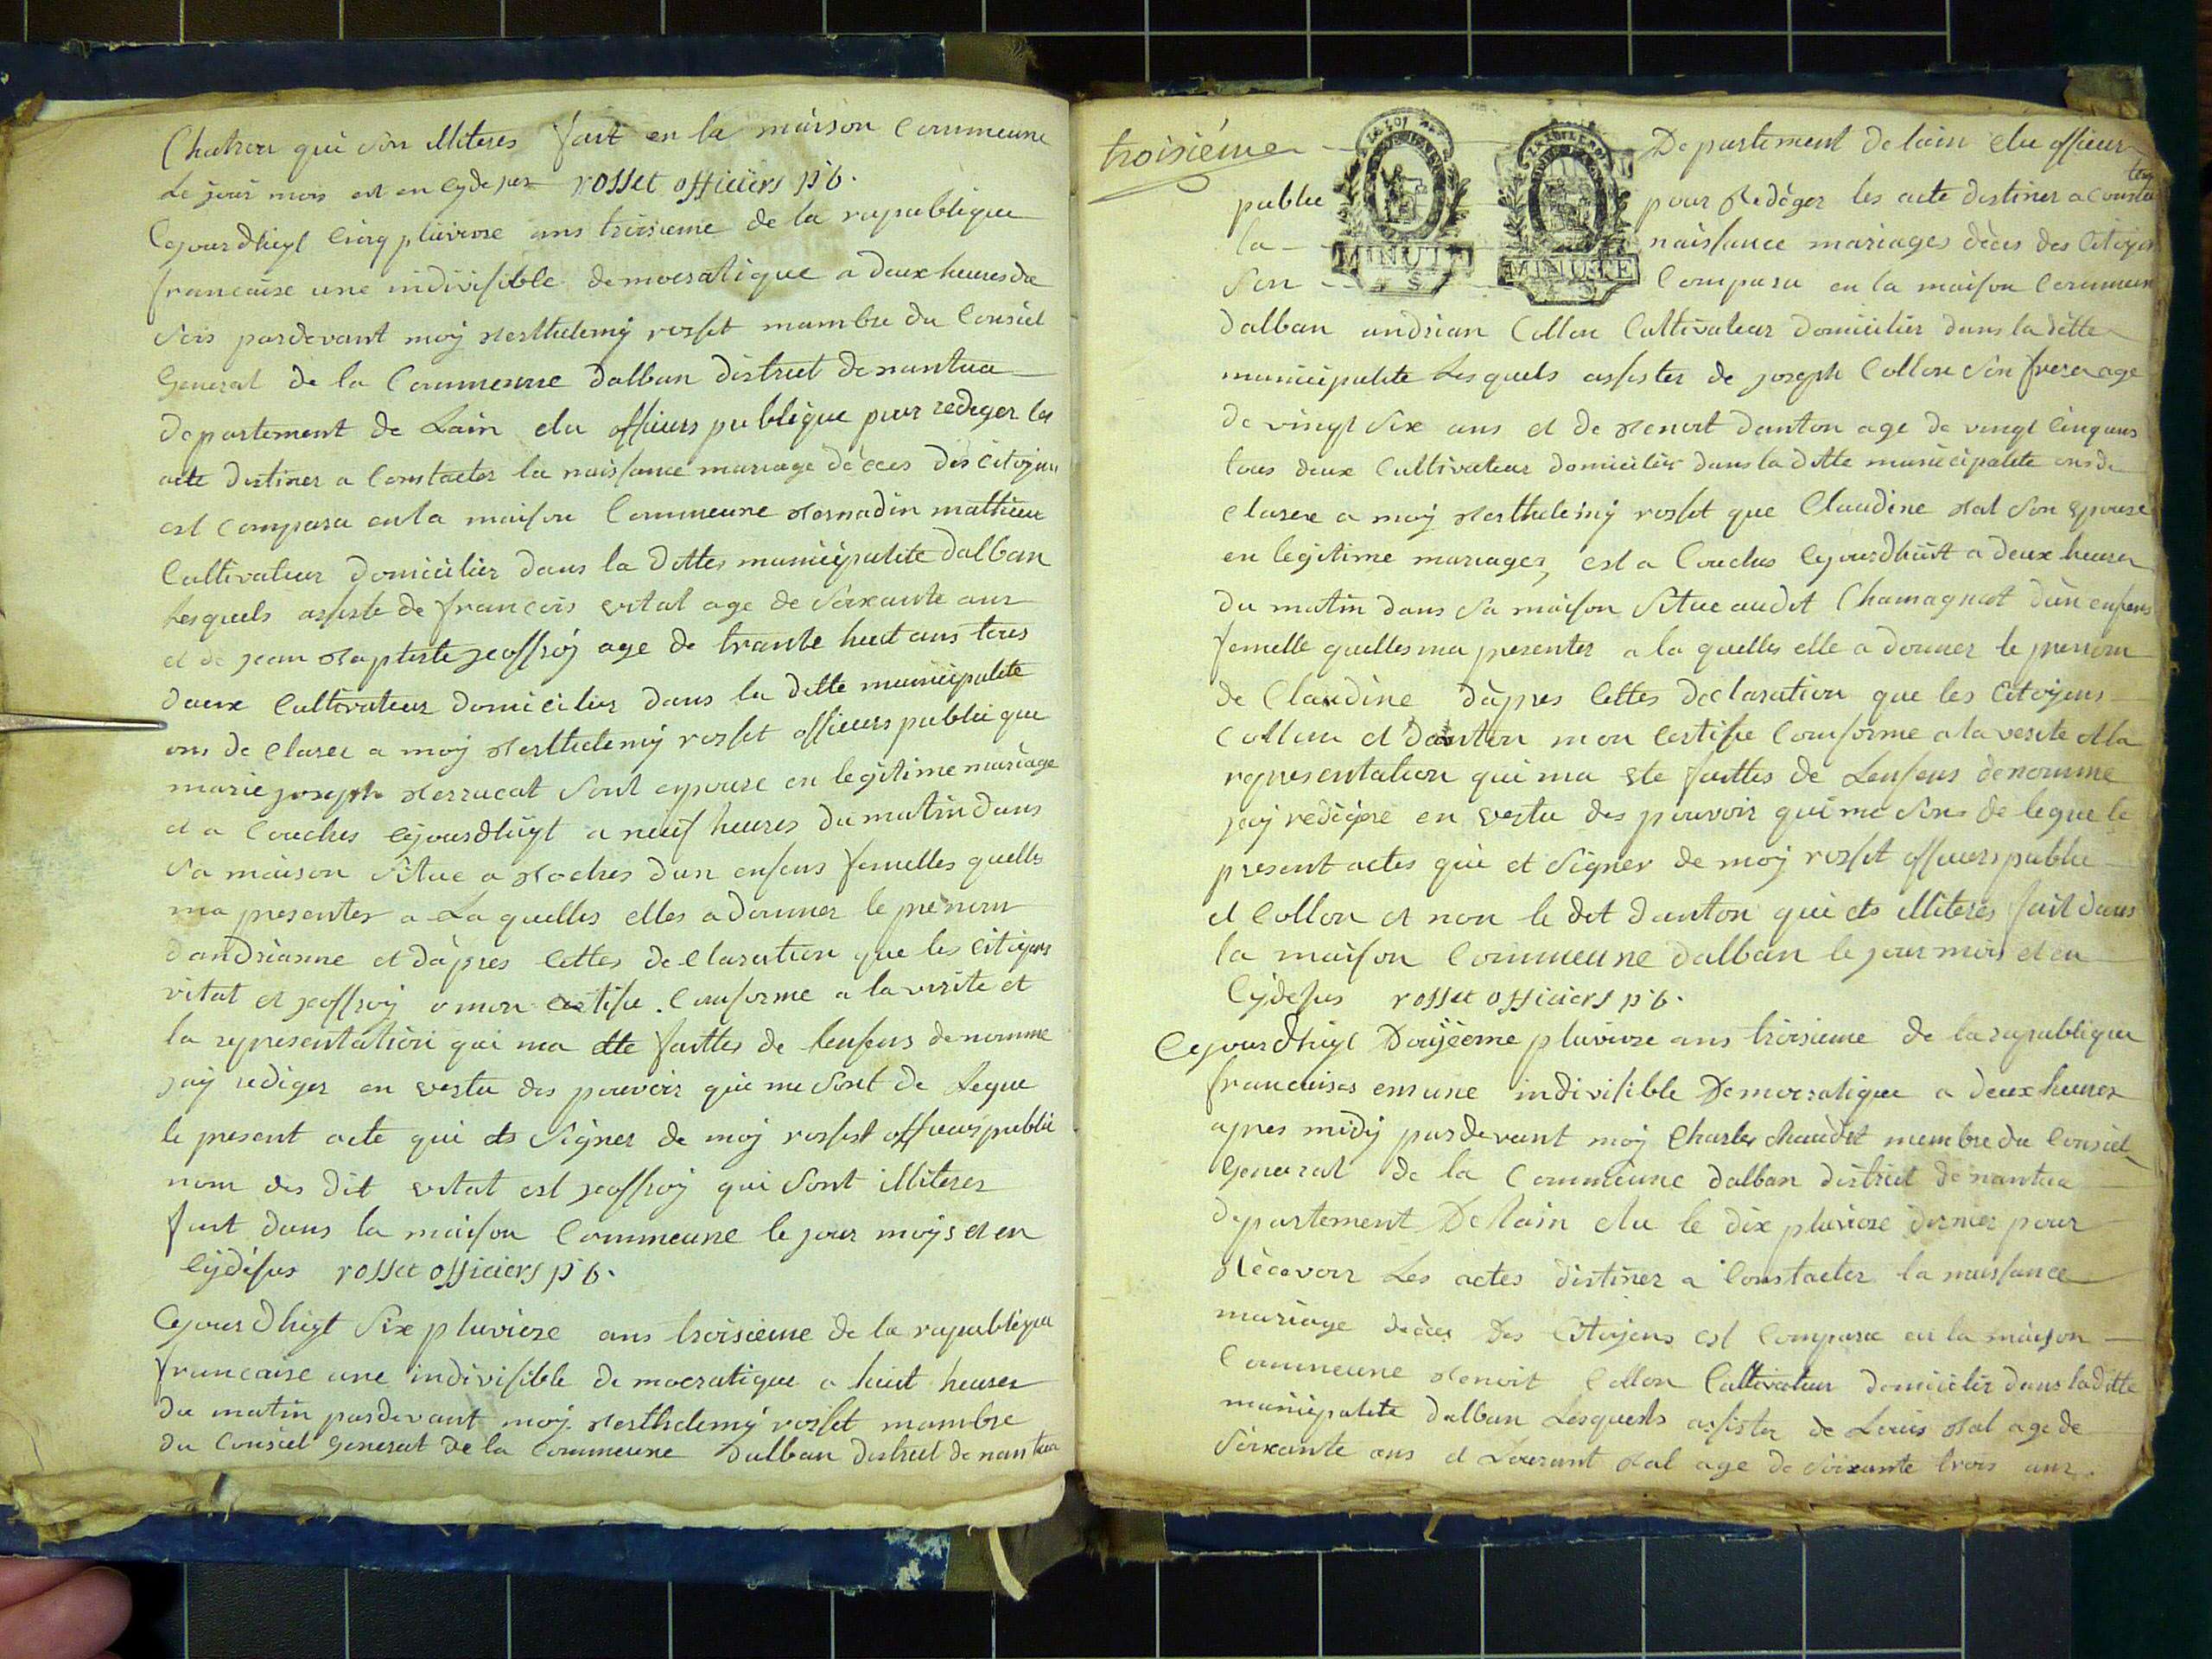 Chatron qui son illiteres fait en la maison Commeune
Le jour mois est en cydesus rosset officiers p'b.
Cejourdhuyt Cinq pluviose ans troisieme de la republique
francaise une indivisible democratique a deux heures du
Soir pardevant moy Barthelemy rosset mambre du Consiel
General de la Commeune Dalban district de nantua
departement de Lain elu officiers publique pour rediger les
acte destines a Constacter la naissance mariage dècces des citoyens
est comparu en la maison Commeune Bernadin mathieu
Cultivateur domicilier dans la ditte municipalite dalban
Lesquels assiste de francois vital age de Soixante ans
et de jean Baptiste jeoffroy age de trante huit ans tous
deux Cultivateur domicilier dans la ditte municipalite
ons de Clarer a moy Barthelemy rosset officiers public que
marie joseph Berrucat Sont epouse en legitime mariage
et a Couches Cejourdhuyt a neuf heures du matin dans
Sa maison Situe a Roches dun enfens femelles quelles
ma presenter a La quelles elles a donner le prenom
dandrianne et dàpres Cettes de Claration que les citoyens
vital et jeoffroy o mon certifie Conforme a la verite et
la representation qui ma ette faittes de lenfens denomme
jay rediger en vertu des pouvoir qui me Sont de Legue
le present acte qui ets Signer de moy rosset officiers public
nom des dit vital est jeoffroy qui Sont illiteres
fait dans la maison Commeune le jour moys et en
Cydesus rosset officiers p'b.
Cejourdhuyt Six pluviose ans troisieme de la republique
francaise une indivisible democratique a huit heures
du matin pardevant moy Barthelemy rosset mambre
du Consiel General de la Commeune Dalban district de nantua
troisiéme
Departement de lain elu officiers
public pour Rediger les acte destines a Constater
la naissance mariages dèces des Citoyens
Son Comparu en la maison Commeun
MINUTE
MINUTE
dalban andrian Collon Cultivateur domicilier dans la ditte
municipalite Lesquels assister de joseph Collon Son frere age
de vingt Six ans et de Benoit danton age de vingt Cinq ans
tous deux Cultivateur domicilier dans la ditte municipalite ons de
clarere a moy Barthelemy rosset que Claudine Bal Son epouse
en legitime mariages, est a Couches Cejourdhuit a deux heures
du matin dans Sa maison Situe audit Chamagnat dùn enfens
femelle quelles ma presenter a la quelles elle a donner le prenom
de Claudine dàpres Cettes declaration que les Citoyens
Collon et Danton mon Certifie Conforme a la verite et la
representation qui ma ete faittes de Lenfens denomme
jay redigere en vertu des pouvoir qui me Sons de legue le
present actes qui et Signer de moy rosset officiers public
et Collon et non le dit danton qui ets illiteres fait dans
la maison Commeune dalban le jour mois et en
Cydesus rosset officiers p'b.
Cejourdhuyt Doujieme pluviose ans troisieme de la republique
francaises ensune indivisible Democratique a deux heures
apres midy pardevant moy Charles chaudet membre du Consiel
General de la Commeune dalban district de nantua
departement De lain elu le dix pluviose dernier pour
Recevoir Les actes distiner a Constacter la naissance
mariage dèces Des Citoyens est Compare en la maison
Commeune Benoit Collon Cultivateur domicilier dans la ditte
municipalite dalban Lesquels assister de Louis Bal age de
Soixante ans et Lourant Bal age de Soixante trois ans.